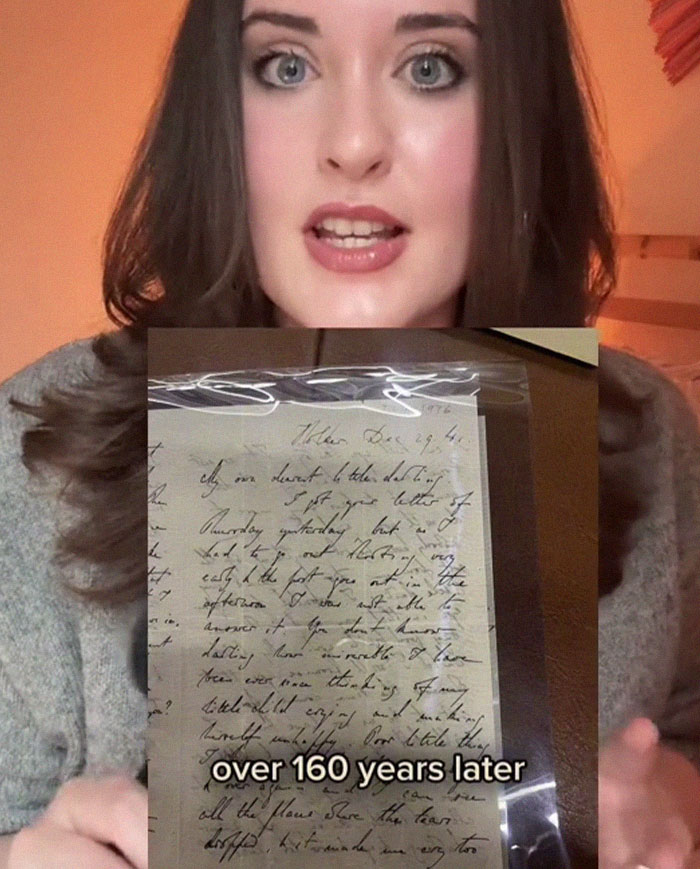 Holker Dec 29
My own dearest little darling
I got your letter of
Thursday yesterday but as I
had to go out shooting very
early & the post goes out in the
afternoon I was not able to
answer it You dont know
darling how miserable I have
been ever since thinking of my
little child crying and making
herself unhappy. Poor little thing
over 160 years later
over again and can see
all the places where the tears
dropped, & it made me cry too